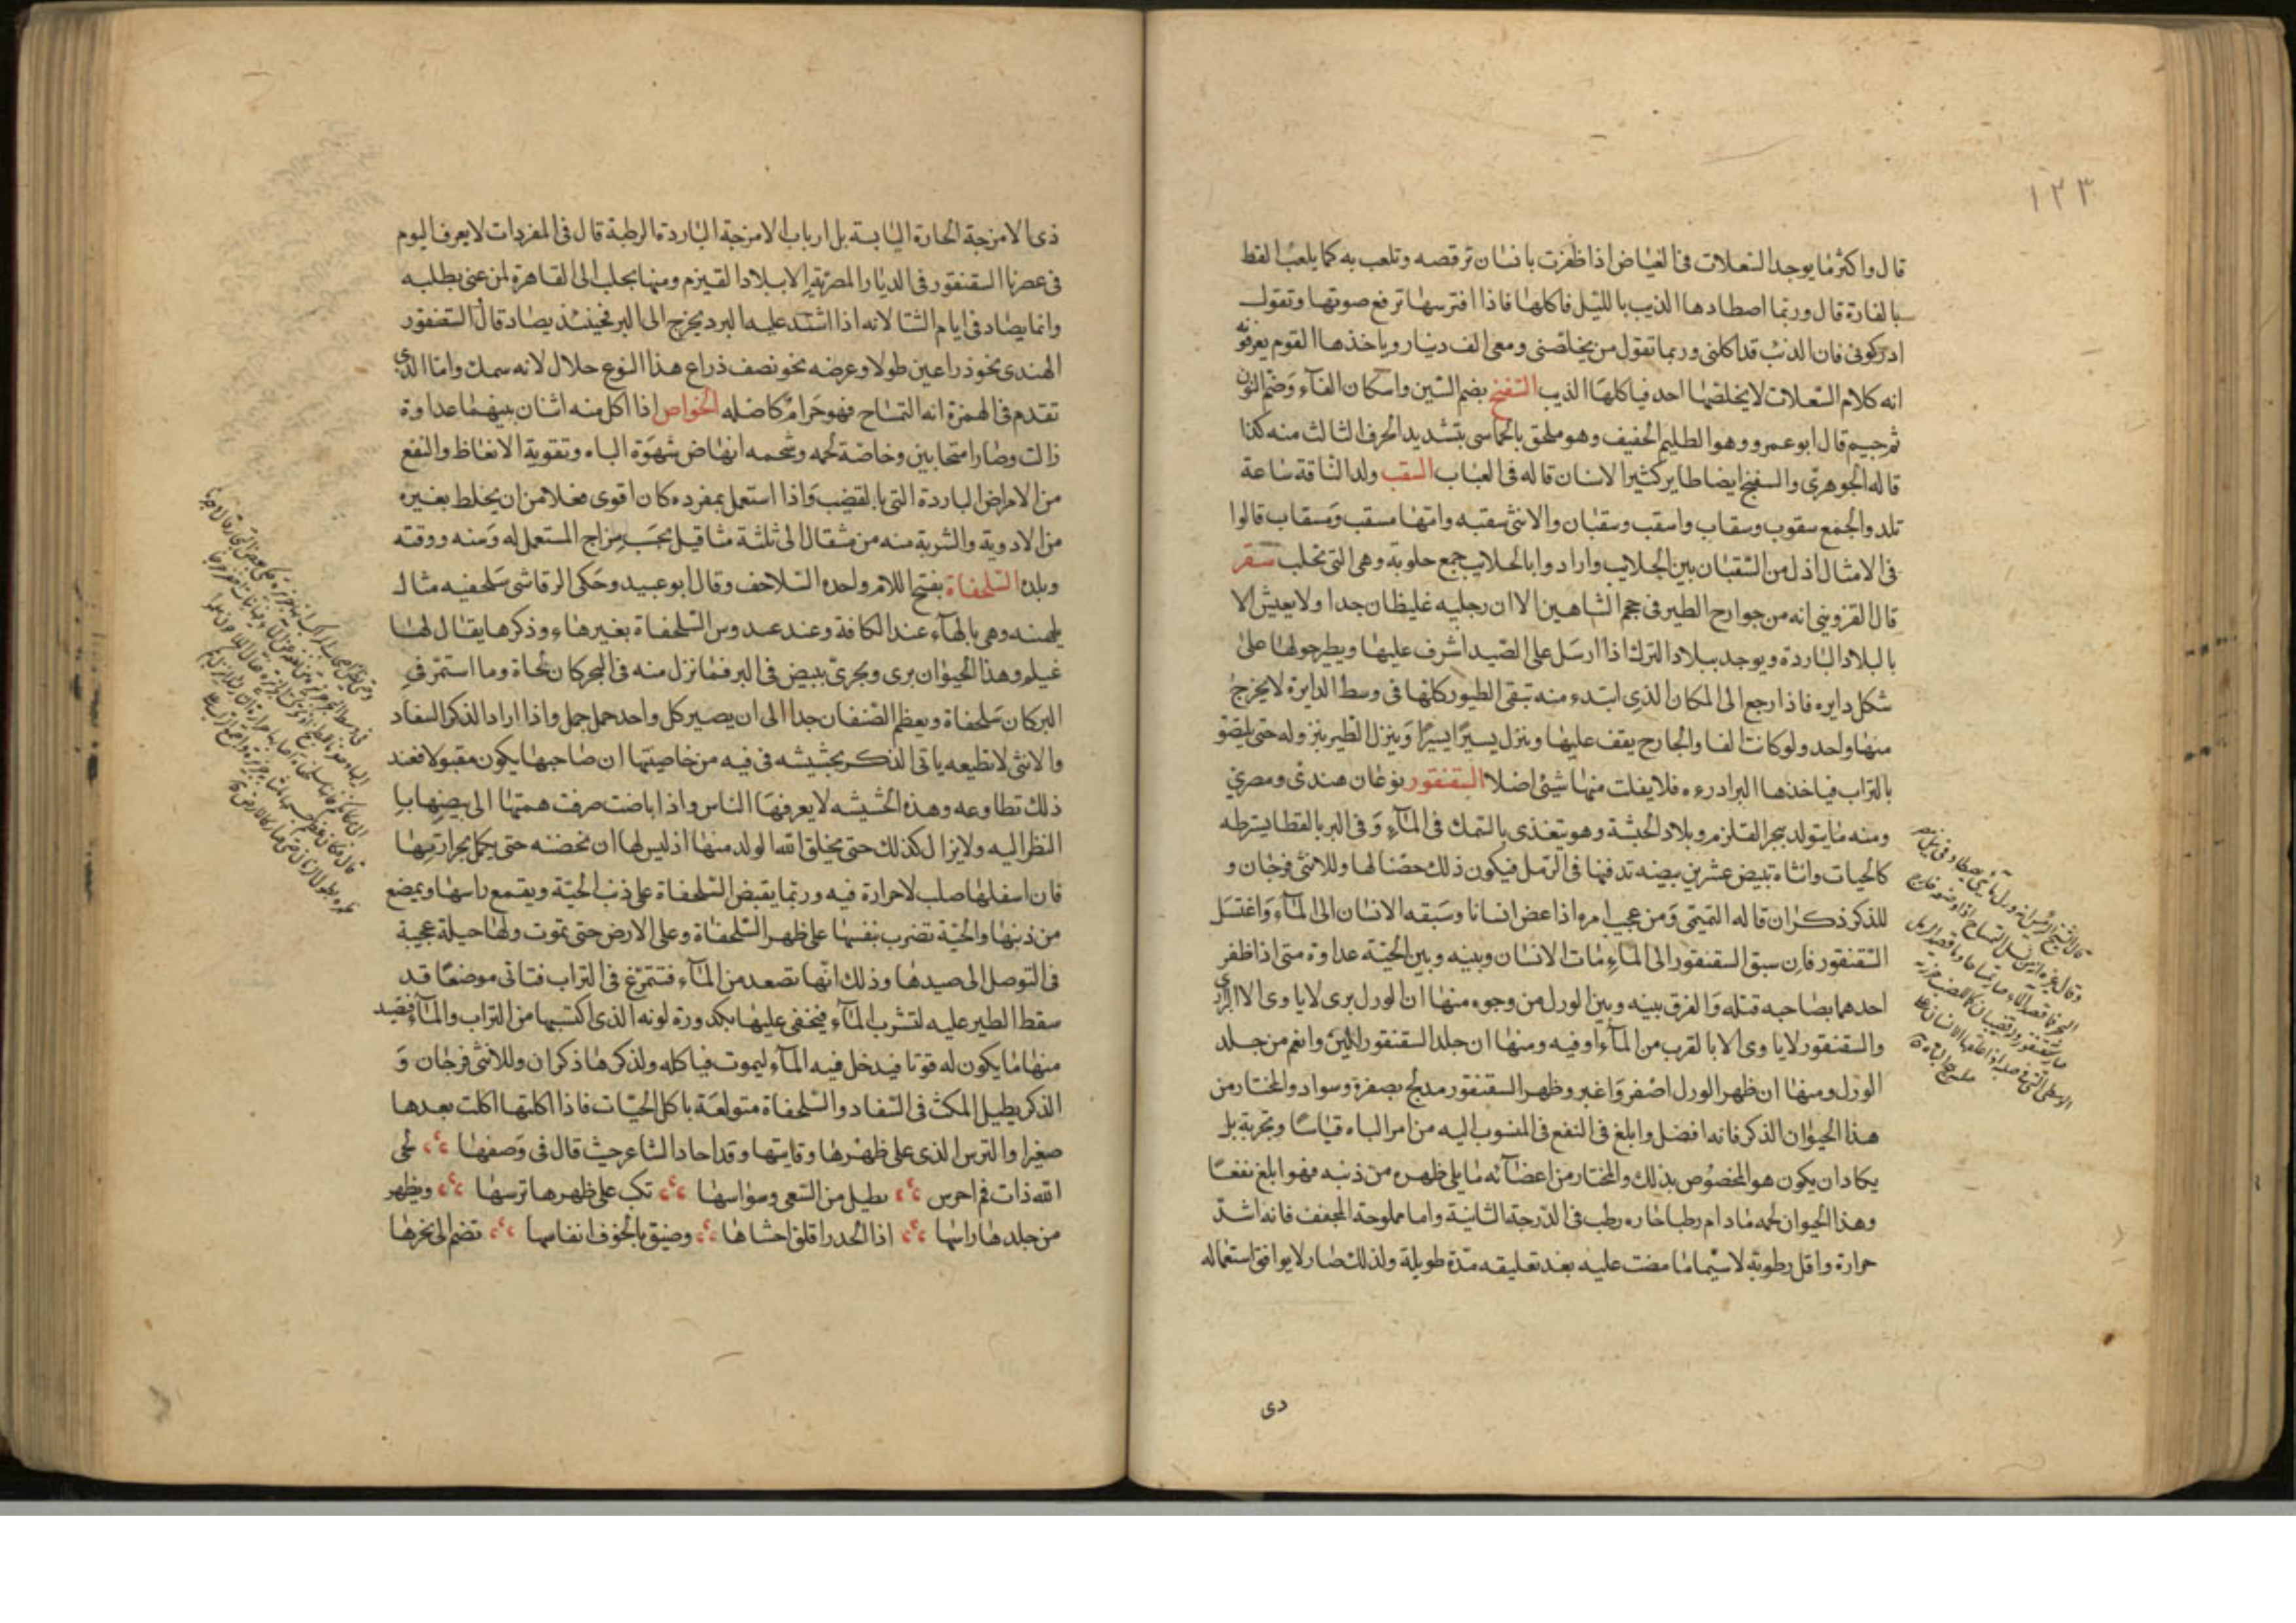 ١٢٣
قال واكثر ما يوجد السعلات فى الغياض اذا ظفرت بانسان ترقصه وتلعب به كما يلعب القط
بالفارة قال وربما اصطادها الذيب بالليل فاكلها فاذا افترسها ترفع صوتها وتقول
ادركونى فان الذئب قد اكلنى وربما تقول من يخلصنى ومعى الف دينار وياخذها القوم يعرفو نه
انه كلام السعلات لا يخلصها احد فياكلها الذيب السفنج بضم السين واسكان الفآء وضم النون
ثم جيم قال ابو عمرو وهو الظليم الخفيف وهو ملحق بالخماسى بتشديد الحرف الثالث منه كذا
قاله الجوهرى والسفنج ايضا طاير كثير الاسنان قاله فى العباب السقب ولد الناقة ساعة
تلد والجمع سقوب وسقاب واسقب وسقبان والانثى سقبه وامها مسقب ومسقاب قالوا
فى الامثال اذل من السقبان بين الحلايب وارادوا بالحلايب جمع حلوبة وهى التى تحلب سقر
قال القزوينى انه من جوارح الطير فى حجم الشاهين الا ان رجليه غليظان جدا ولا يعيش الا
بالبلاد الباردة ويوجد ببلاد الترك اذا ارسل على الصيد اشرف عليها ويطير حولها على
شكل دايره فاذا رجع الى المكان الذى ابتدء منه تبقى الطيور كلها فى وسط الدايرة لا يخرج
منها واحد ولو كانت الفا والجارح يقف عليها وينزل يسيرا يسيرا وينزل الطير بنزوله حتى يلصقو
بالتراب فياخذها البرادره فلا يفلت منها شيئ اصلا السقنقور نوعان هندى ومصرى
ومنه ما يتولد ببحر القلزم وبلاد الحبشة وهو يتغذى بالسمك فى المآء وفى البر بالقطا يسترطه
كالحيات وانثاه تبيض عشرين بيضه تدفنها فى الرمل فيكون ذلك حضنا لها وللانثى فرجان و
للذكر ذكران قاله التميمى ومن عجيب امره اذا عض انسانا وسبقه الانسان الى المآء واغتسل
السقنقور فان سبق السقنقور الى المآء مات الانسان وبينه وبين الحية عداوة متى اذا ظفر
احدهما بصاحبه قتله والفرق بينه وبين الورل من وجوه منها ان الورل برى لا ياوى الا البرارى
والسقنقور لا ياوى الا بالقرب من المآء او فيه ومنها ان جلد السقنقور الين وانعم من جلد
الورل ومنها ان ظهر الورل اصفر واغبر وظهر السقنقور مدبج بصفرة وسواد والمختار من
هذا الحيوان الذكر فانه افضل وابلغ فى النفع فى المنسوب اليه من امر الباه قياسا وتجربة بل
يكاد ان يكون هو المخصوص بذلك والمختار من اعضآئه ما يلى ظهره من ذنبه فهو ابلغ نفعا
وهذا الحيوان لحمه مادام رطبا حاره رطب فى الدرجة الثانية واما مملوحة المجفف فانه اشد
حرارة واقل رطوبة لا سيما ما مضت عليه بعد تعليقه مدة طويلة ولذلك صار لا يوافق استعماله
دى
ذى الامزجة الحارة اليابسة بل ارباب الامزجة الباردة الرطبة قال فى المفردات لا يعرف اليوم
فى عصرنا السقنقور فى الديار المصرية الا ببلاد القيزم ومنها يجلب الى القاهرة لمن عنى بطلبه
وانما يصاد فى ايام الشتا لانه اذا اشتد عليه البرد يخرج الى البر فحينئذ يصاد قال السقنقور
الهندى نحو ذراعين طولا وعرضه نحو نصف ذراع هذا النوع حلال لانه سمك واما الذى
تقدم فى الهمزة انه التمساح فهو حرام كاصله الخواص اذا اكل منه اثنان بينهما عداوة
زالت وصارا متحابين وخاصة لحمه وشحمه انهاض شهوة الباه وتقوية الانعاظ والنفع
من الامراض الباردة التى بالقضيب واذا استعمل بمفرده كان اقوى فعلا من ان يخلط بغيره
من الادوية والشربة منه من مثقال الى ثلثة مثاقيل بحسب مزاج المستعمل له وسنه ووقته
وبلده السلحفاة بفتح اللام واحده السلاحف وقال ابو عبيد وحكى الرقاشى سلحفيه مثال
بلهنه وهى بالهآء عند الكافة وعند عبدوس السلحفاة بغير هاء وذكرها يقال لها
غيلم وهذا الحيوان برى وبحرى يبيض فى البر فما نزل منه فى البحر كان لجاة وما استمر فى
البر كان سلحفاة ويعظم الصنفان جدا الى ان يصير كل واحد حمل جمل واذا اراد الذكر السفاد
والانثى لا تطيعه ياتى الذكر بحشيشه فى فيه من خاصيتها ان صاحبها يكون مقبولا فعند
ذلك تطاوعه وهذه الحشيشه لا يعرفها الناس واذا باضت صرفت همتها الى بيضها با
النظر اليه ولا يزال كذلك حتى يخلق الله الولد منها اذ ليس لها ان تحضنه حتى يكمل بحرارتها
فان اسفلها صلب لا حرارة فيه وربما يقبض السلحفاة على ذنب الحية ويقمع راسها ويمضع
من ذنبها والحية تضرب بنفسها على ظهر السلحفاة وعلى الارض حتى تموت ولها حيلة عجيبة
فى التوصل الى صيدها وذلك انها تصعد من المآء فتتمرغ فى التراب فتاتى موضعا قد
سقط الطير عليه لتشرب المآء فيخفى عليها بكدورة لونه الذى اكتسبها من التراب والمآء فتصيد
منها ما يكون له قوتا فيدخل فيه المآء ليموت فياكله ولذكرها ذكران وللانثى فرجان و
الذكر يطيل المكث فى السفاد والسلحفاة متولعة باكل الحيات فاذا اكلتها اكلت بعدها
صغيرا والترس الذى على ظهرها وقايتها وقد احاد الشاعر حيث قال فى وصفها لحى
الله ذات فم اخرس تطيل من السعى وسواسها تكب على ظهرها ترسها ويظهر
من جلدها راسها اذا الحدر اقلق احشاها وضيق بالخوف انفاسها تضم الى نحرها